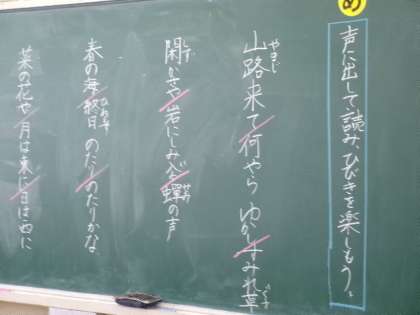 め
声に出して読み、ひびきを楽しもう。
山路来て何やらゆかしすみれ草
閑かさや岩にしみ入る蟬の声
春の海終日のたりのたりかな
菜の花や月は東に日は西に